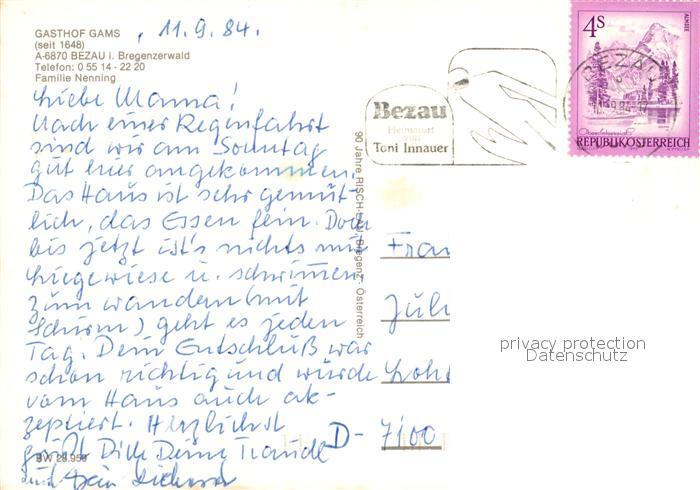 GASTHOF GAMS
(seit 1648)
A-6870 BEZAU i. Bregenzerwald
Telefon: 0 55 14 - 22 20
Familie Nenning
, 11.9.84.
Liebe Mama!
Nach einer Regenfahrt
sind wir am Sonntag
gut hier angekommen.
Das Haus ist sehr gemüt-
lich, das Essen fein. Doch
bis jetzt ist's nichts mit
Liegewiese u. schwimmen
zum wandern (mit
Schirm) geht es jeden
Tag. Dein Entschluß war
schon richtig und würde
vom Haus auch ak-
zeptiert. Herzlichst
grüßt Dich Deine Traudl
und Dein
BW 28.958
90 Jahre RISCH-LAU, Bregenz - Österreich
Bezau
Heimatort
von
Toni Innauer
4S
ALMSEE
BEZAU
Oberösterreich
REPUBLIK ÖSTERREICH
Frau
Juli
Lohr
D- 7100
privacy protection
Datenschutz